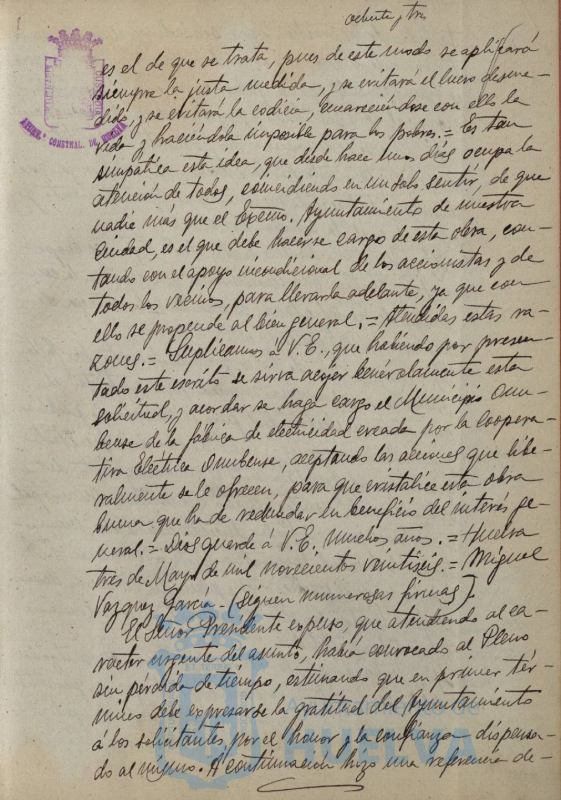 ochenta y tres
AYUNT.º CONSTNAL. DE HUELVA
es el de que se trata, pues de este modo se aplicará
siempre la justa medida, y se evitará el lucro desme-
dido, y se evitará la codicia, encareciéndose con ello la
vida y haciéndola imposible para los pobres.= Es tan
simpática esta idea, que desde hace unos días ocupa la
atención de todos, coincidiendo en un solo sentir, de que
nadie más que el Excmo. Ayuntamiento de nuestra
Ciudad, es el que debe hacerse cargo de esta obra, con-
tando con el apoyo incondicional de los accionistas y de
todos los vecinos, para llevarla adelante, ya que con
ello se propende al bien general.= Atendidas estas ra-
zones.= Suplicamos á V.E., que habiendo por presen-
tado este escrito se sirva acojer benévolamente esta
solicitud, y acordar se haga cargo el Municipio Onu-
bense de la fábrica de electricidad creada por la Coopera-
tiva Eléctrica Onubense, aceptando las acciones que libe-
ralmente se le ofrecen, para que cristalice esta obra
buena que ha de redundar en beneficio del interés ge-
neral.= Dios guarde á V.E. muchos años.= Huelva
tres de Mayo de mil novecientos veintiseis.= Miguel
Vazquez García.- (Siguen numerosas firmas).
El Señor Presidente expuso, que atendiendo al ca-
rácter urgente del asunto, había convocado al Pleno
sin pérdida de tiempo, estimando que en primer tér-
mino debe expresarse la gratitud del Ayuntamiento
á los solicitantes por el honor y la confianza dispensa-
do al mismo. A continuación hizo una referencia de-
HUELVA